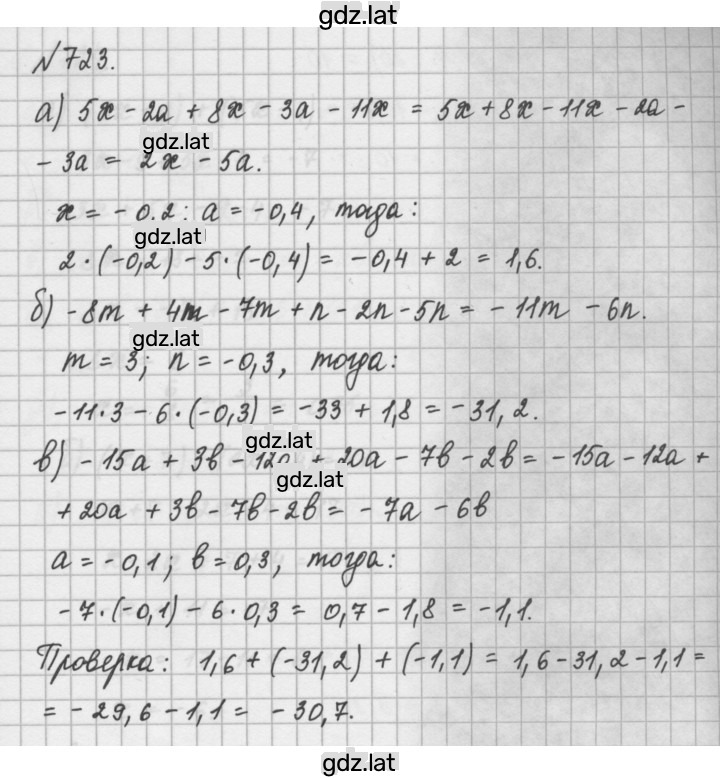 gdz.lat
№723.
а) 5x - 2a + 8x - 3a - 11x = 5x + 8x - 11x - 2a -
gdz.lat
- 3a = 2x - 5a.
x = - 0.2 : a = -0,4, тогда:
gdz.lat
2·(-0,2) - 5·(-0,4) = -0,4 + 2 = 1,6.
б) -8m + 4m - 7m + n - 2n - 5n = - 11m - 6n.
gdz.lat
m = 3; n = -0,3, тогда:
-11·3 - 6·(-0,3) = -33 + 1,8 = -31,2.
gdz.lat
в) -15a + 3b - 12a + 20a - 7b - 2b = -15a - 12a +
gdz.lat
+ 20a + 3b - 7b - 2b = - 7a - 6b
a = -0,1; b = 0,3, тогда:
-7·(-0,1) - 6·0,3 = 0,7 - 1,8 = -1,1.
Проверка: 1,6 + (-31,2) + (-1,1) = 1,6 - 31,2 - 1,1 =
= - 29,6 - 1,1 = - 30,7.
gdz.lat